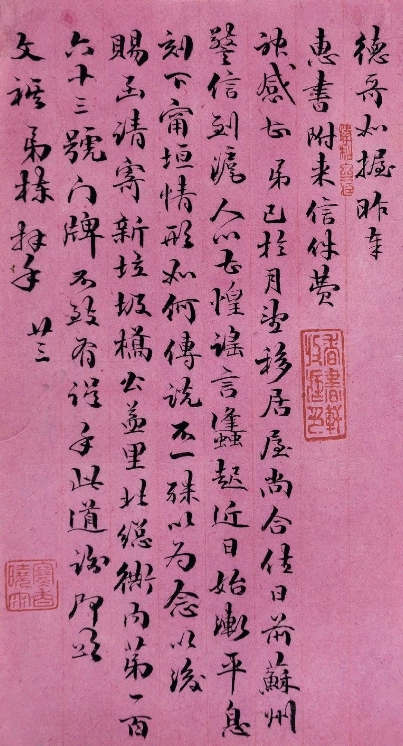 德哥如握昨奉
惠書附來信件費
神感甚弟已於月望移居屋尚合住日前蘇州
警信到滬人心甚惶謠言蠭起近日始漸平息
刻下甯垣情形如何傳說不一殊以為念以後
賜函請寄新垃圾橋公益里北總衖內第一百
六十三號門牌不致有誤手此道謝即頌
文祺弟棟拜手 廿三